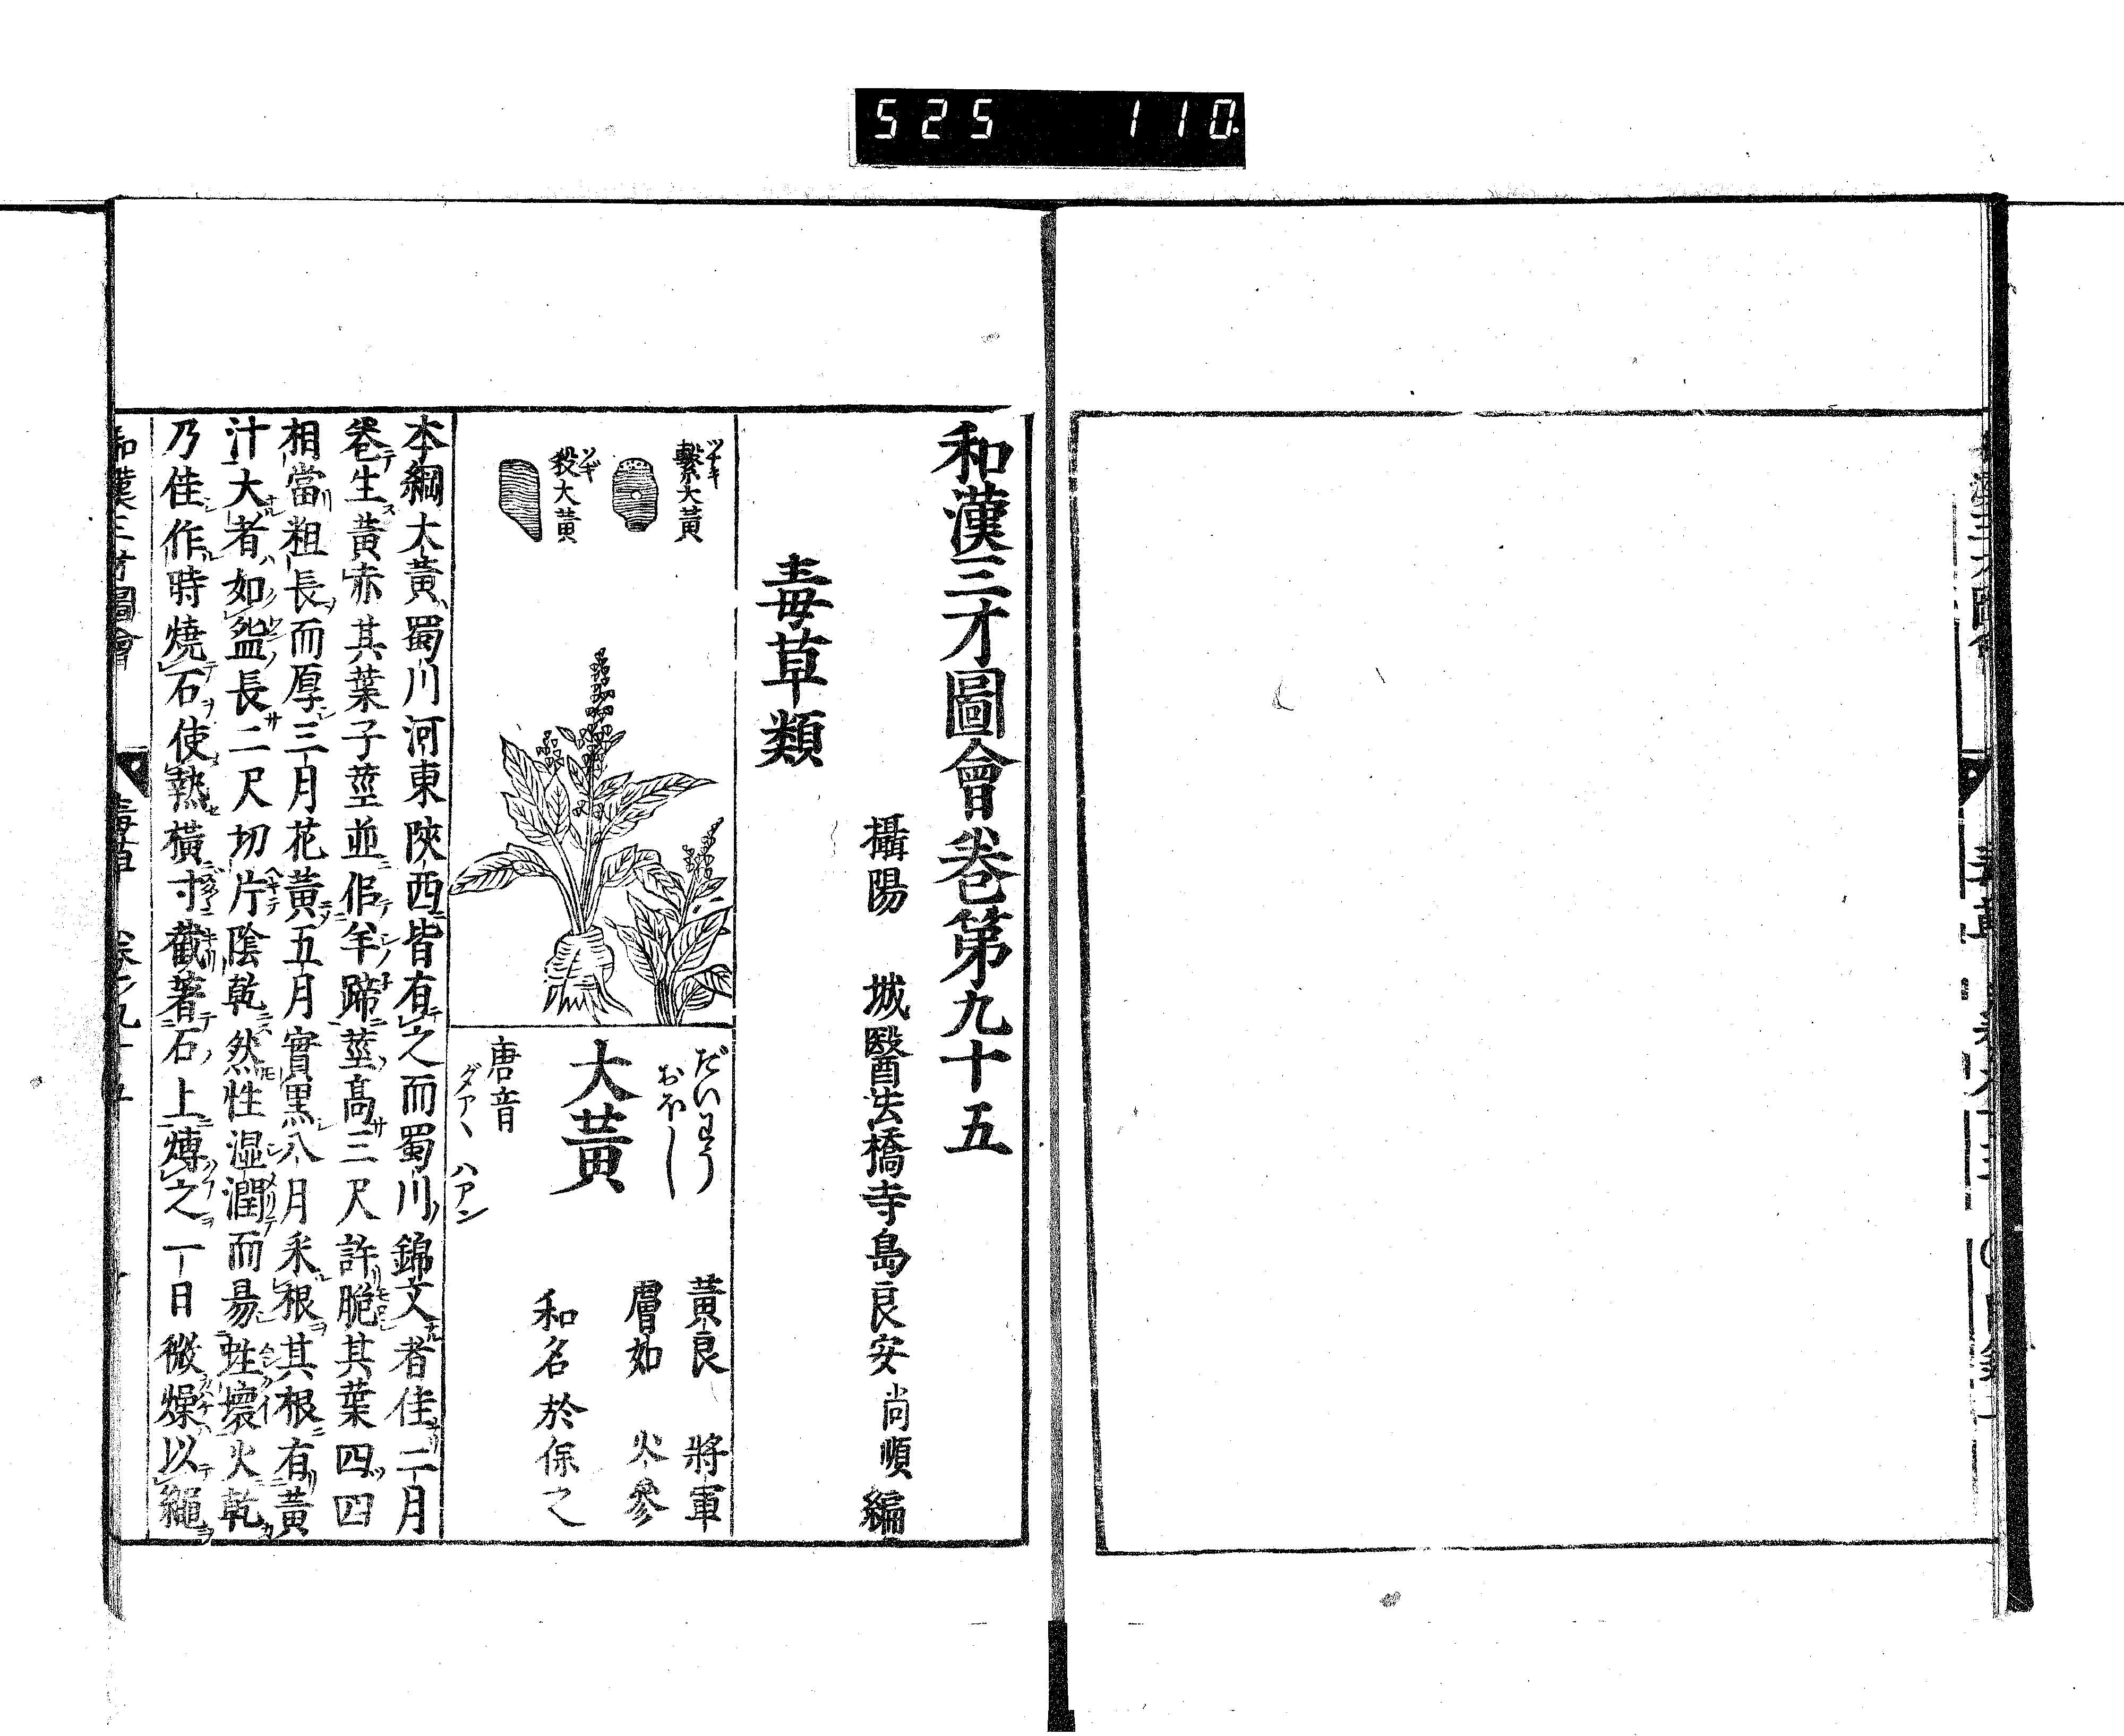 525 110
和漢三才圖會卷第九十五
攝陽 城醫法橋寺島良安尚順編
毒草類
繫大黃
ツナキ
毅大黃
だいわう
おほし
大黃
唐音
ダアヽハアン
黃良 將軍
膚如 火參
和名於保之
本綱大黃蜀川河東陝西皆有之而蜀川錦文者佳二月
卷生黃赤其葉子莖並似羊蹄莖高三尺許脆其葉四四
相當粗長而厚三月花黃五月實黑八月采根其根有黃
汁大者如盌長二尺切片陰乾然性湿潤而易蛀壞火乾
乃佳作時燒石使熱橫寸截著石上煿之一日微燥以繩